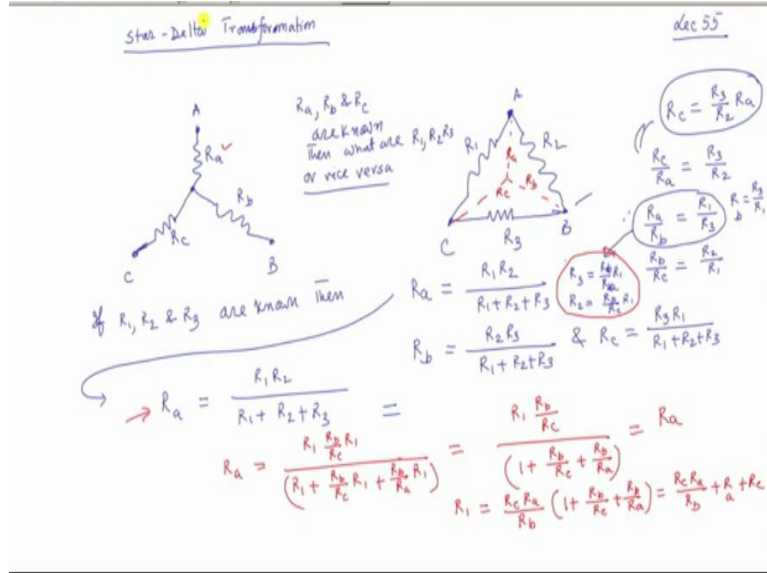 Star-Delta Transformation
Lec 55
A
Ra
Rb
Rc
C
B
Ra, Rb & Rc
are known
Then what are R1, R2 R3
or vice versa
A
R1
R2
Ra
Rc
Rb
C
R3
B
Rc = R3/R2 Ra
Rc/Ra = R3/R2
∴ Ra/Rb = R1/R3
Rb = R3/R1
Rb/Rc = R2/R1
If R1, R2 & R3 are known Then
Ra = R1R2/(R1+R2+R3)
R3 = Rb/Ra R1
R2 = Rb/Rc R1
Rb = R2R3/(R1+R2+R3) & Rc = R3R1/(R1+R2+R3)
Ra = R1R2/(R1+R2+R3) =
Ra = R1 Rb/Rc R1/(R1 + Rb/Rc R1 + Rb/Ra R1) = R1 Rb/Rc/(1 + Rb/Rc + Rb/Ra) = Ra
R1 = RcRa/Rb (1 + Rb/Rc + Rb/Ra) = RcRa/Rb + Ra + Rc